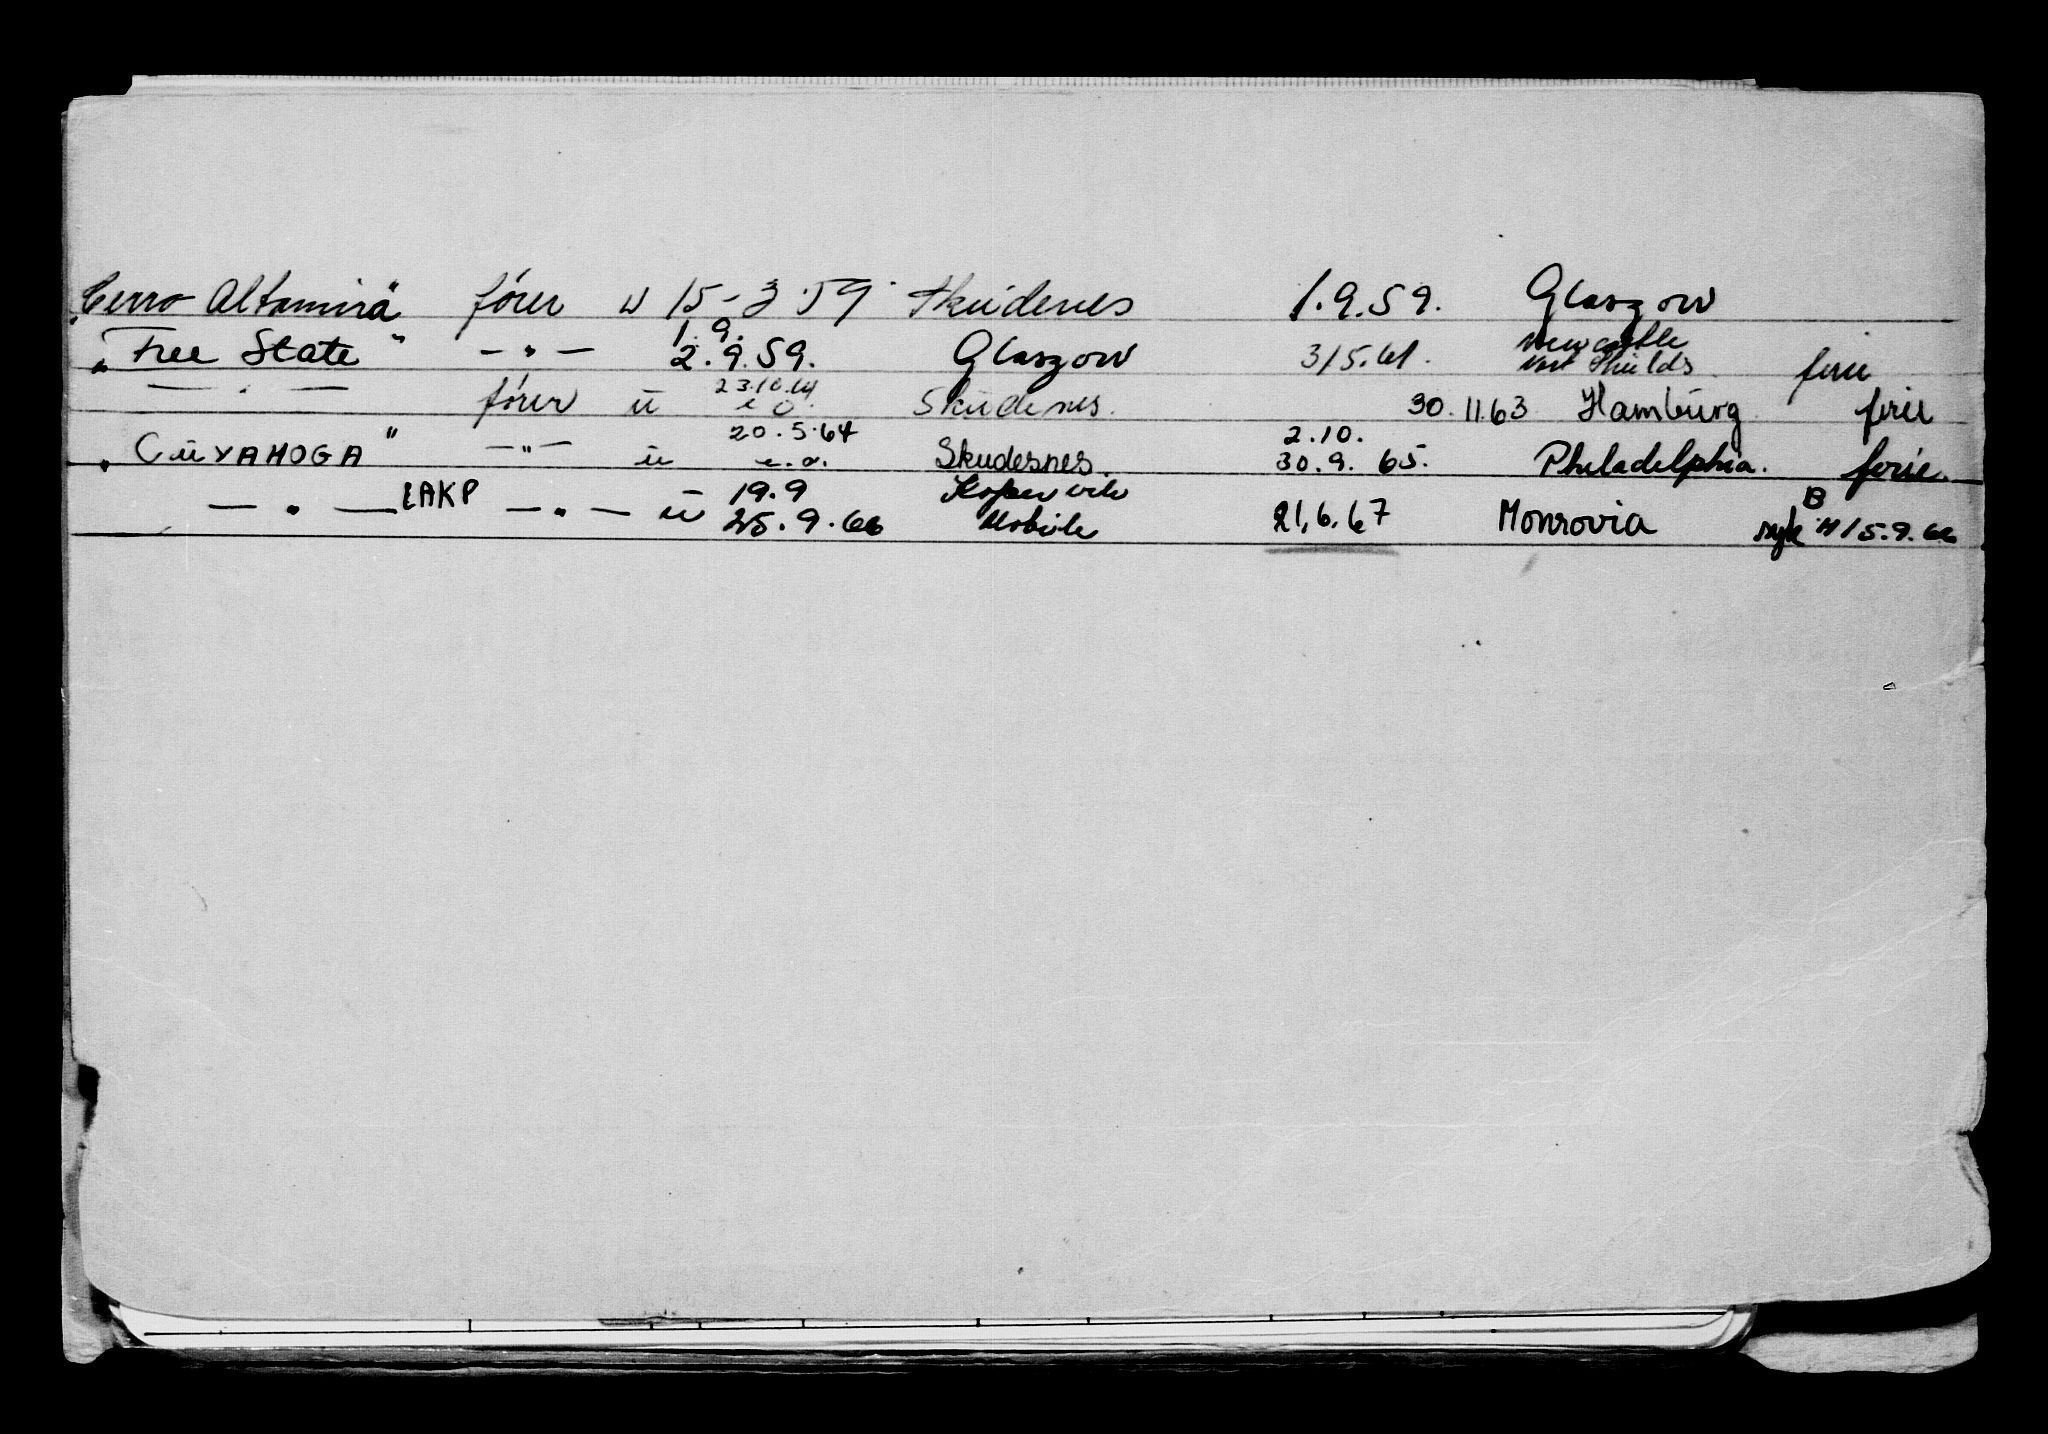 "Cerro Altamira" fører u 15-3.59. Skudenes 1.9.59. Glasgow
1.9. Newcastle
"Free State" — " — 2.9.59. Glasgow 3/5.61. Shields ferie
23.10.61
— " — fører u e.o. Skudenes. 30.11.63 Hamburg ferie
20.5.64 2.10.
"CUYAHOGA" — " — u e.o. Skudesnes. 30.9.65. Philadelphia. ferie.
19.9 Kopervik B
— " — LAKP — " — u 25.9.66 Mobile 21.6.67 Monrovia syk 15.9.66